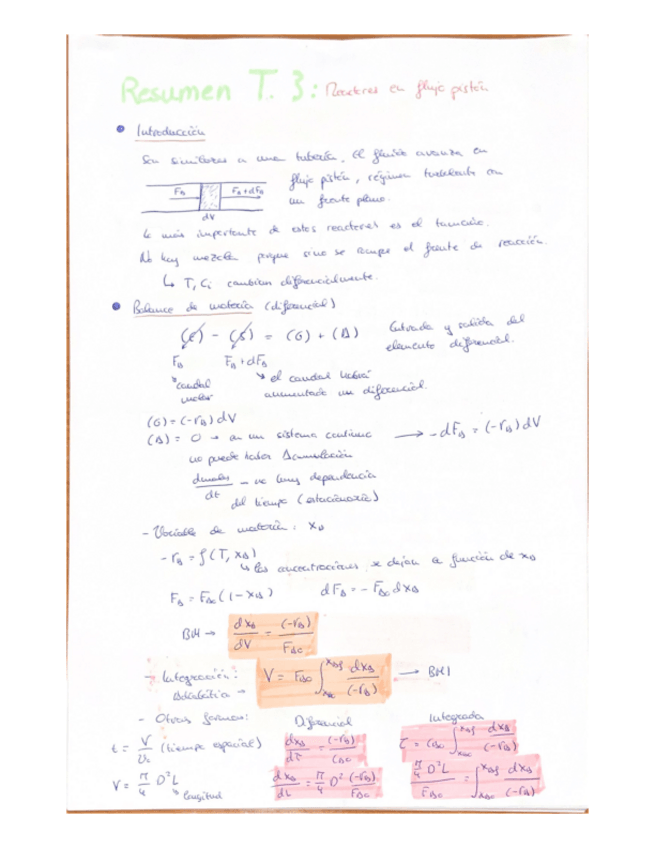 Resumen T. 3: Reactores en flujo pistón
• Introducción
Son similares a una tubería, el fluido avanza en
flujo pistón, régimen turbulento en
un frente plano.
F_A F_A + dF_A
dV
Lo más importante de estos reactores es el tamaño.
No hay mezcla porque sino se rompe el frente de reacción.
↳ T, Ci cambian diferencialmente.
• Balance de materia (diferencial)
(E) - (S) = (G) + (A) Entrada y salida del
elemento diferencial.
F_A F_A + dF_A
caudal molar
el caudal habrá
aumentado un diferencial.
(G) = (-r_A) dV
(A) = 0 → en un sistema continuo → -dF_A = (-r_A) dV
no puede haber Acumulación
dmoles/dt → no hay dependencia
del tiempo (estacionario)
- Variable de materia: X_A
-r_A = f(T, X_A)
↳ las concentraciones se dejan en función de X_A
F_A = F_A0 (1 - X_A) dF_A = -F_A0 dX_A
BM → dX_A/dV = (-r_A)/F_A0
- Integración: V = F_A0 ∫_{X_A0}^{X_Af} dX_A/(-r_A) → BM1
Adiabática →
- Otras formas: Diferencial Integrada
t = V/v_0 (tiempo espacial) dX_A/dτ = (-r_A)/C_A0 τ = C_A0 ∫_{X_A0}^{X_Af} dX_A/(-r_A)
V = π/4 D²L dX_A/dL = π/4 D² (-r_A)/F_A0 π/4 D²L/F_A0 = ∫_{X_A0}^{X_Af} dX_A/(-r_A)
↳ longitud